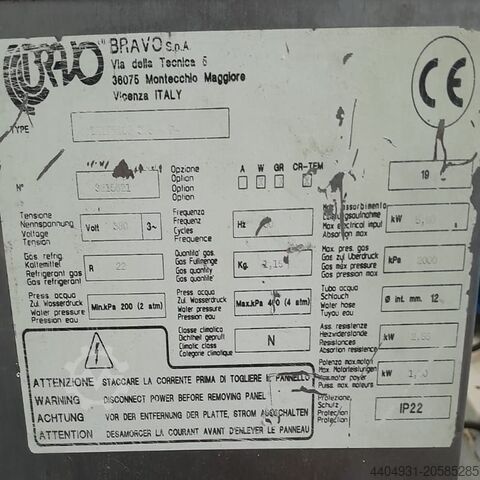 BRAVO
BRAVO S.p.A.
Via della Tecnica 5
36075 Montecchio Maggiore
Vicenza ITALY
CE
TYPE
N°
Opzione
Option
Option
Option
A W GR CR-TEM
19
Tensione
Nennspannung
Voltage
Tension
Volt 380 3~
Frequenza
Frequenz
Cycles
Frequence
Hz
Max assorbimento
Leistungsaufnahme
Max electrical imput
Absortion max
kW
Gas refrig.
Kaltemittel
Refrigerant gas
Gas refrigerant
R 22
Quantità gas
Gas Fullmenge
Gas quantity
Gas quantité
Kg.
Max pres. gas
Gas zul Uberdruck
Gas max pressure
Gas pression max
kPa 2000
Press acqua
Zul. Wasserdruck
Water pressure
Pression eau
Min.kPa 200 (2 atm)
Press acqua
Zul. Wasserdruck
Water pressure
Pression eau
Max.kPa 400 (4 atm)
Tubo acqua
Schlauch
Water hose
Tuyau eau
Ø int. mm. 12
Classe climatica
Dichtheit gepruft
Climatic class
Categorie climatique
N
Ass. resistenze
Heizwiderstande
Resistances
Absortion resistance
kW
Potenza max.motori
Max Motorleistungen
Max.motor power
Puiss max moteurs
kW
ATTENZIONE STACCARE LA CORRENTE PRIMA DI TOGLIERE IL PANNELLO
WARNING DISCONNECT POWER BEFORE REMOVING PANEL
ACHTUNG VOR DER ENTFERNUNG DER PLATTE, STROM AUSSCHALTEN
ATTENTION DESAMORCER LA COURANT AVANT D'ENLEVER LE PANNEAU
Protezione
Schutz
Protection
Protection
IP22
4404931-20585285